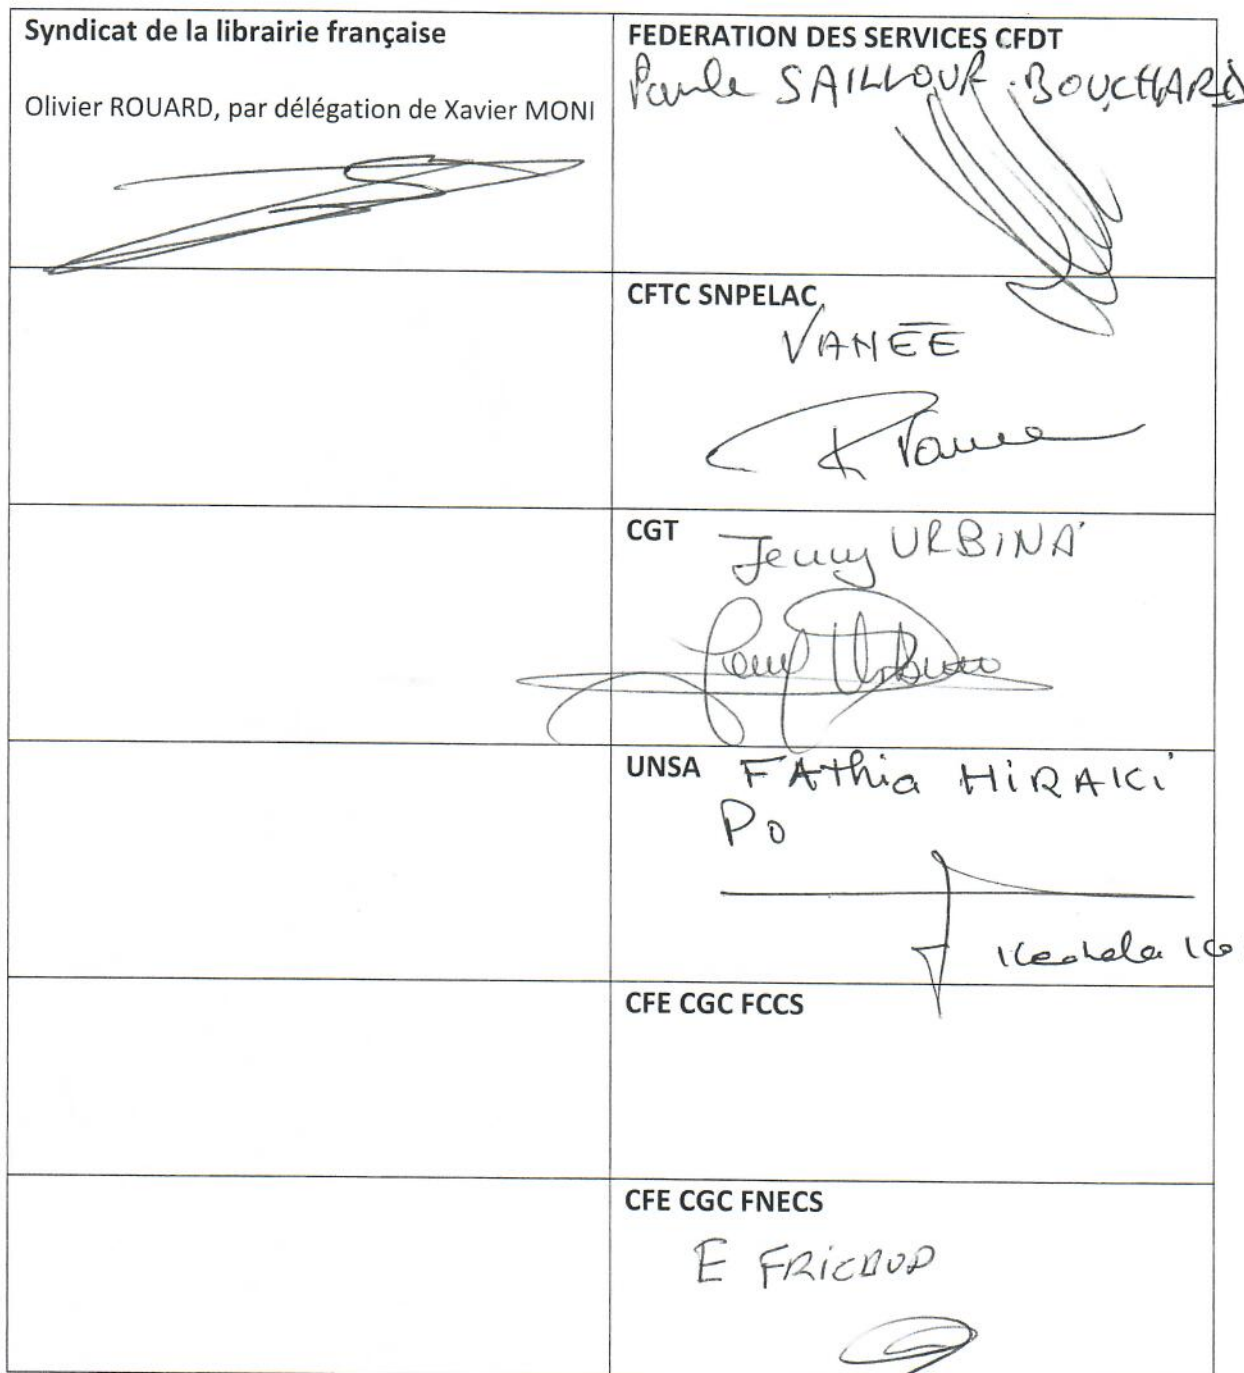 Syndicat de la librairie française
Olivier ROUARD, par délégation de Xavier MONI
FEDERATION DES SERVICES CFDT
Paule SAILLOUR BOUCHARD
CFTC SNPELAC
VANEE
CGT
Jenny URBINA
UNSA FAthia HiRAKi
Po
CFE CGC FCCS
CFE CGC FNECS
E FRiCAUD